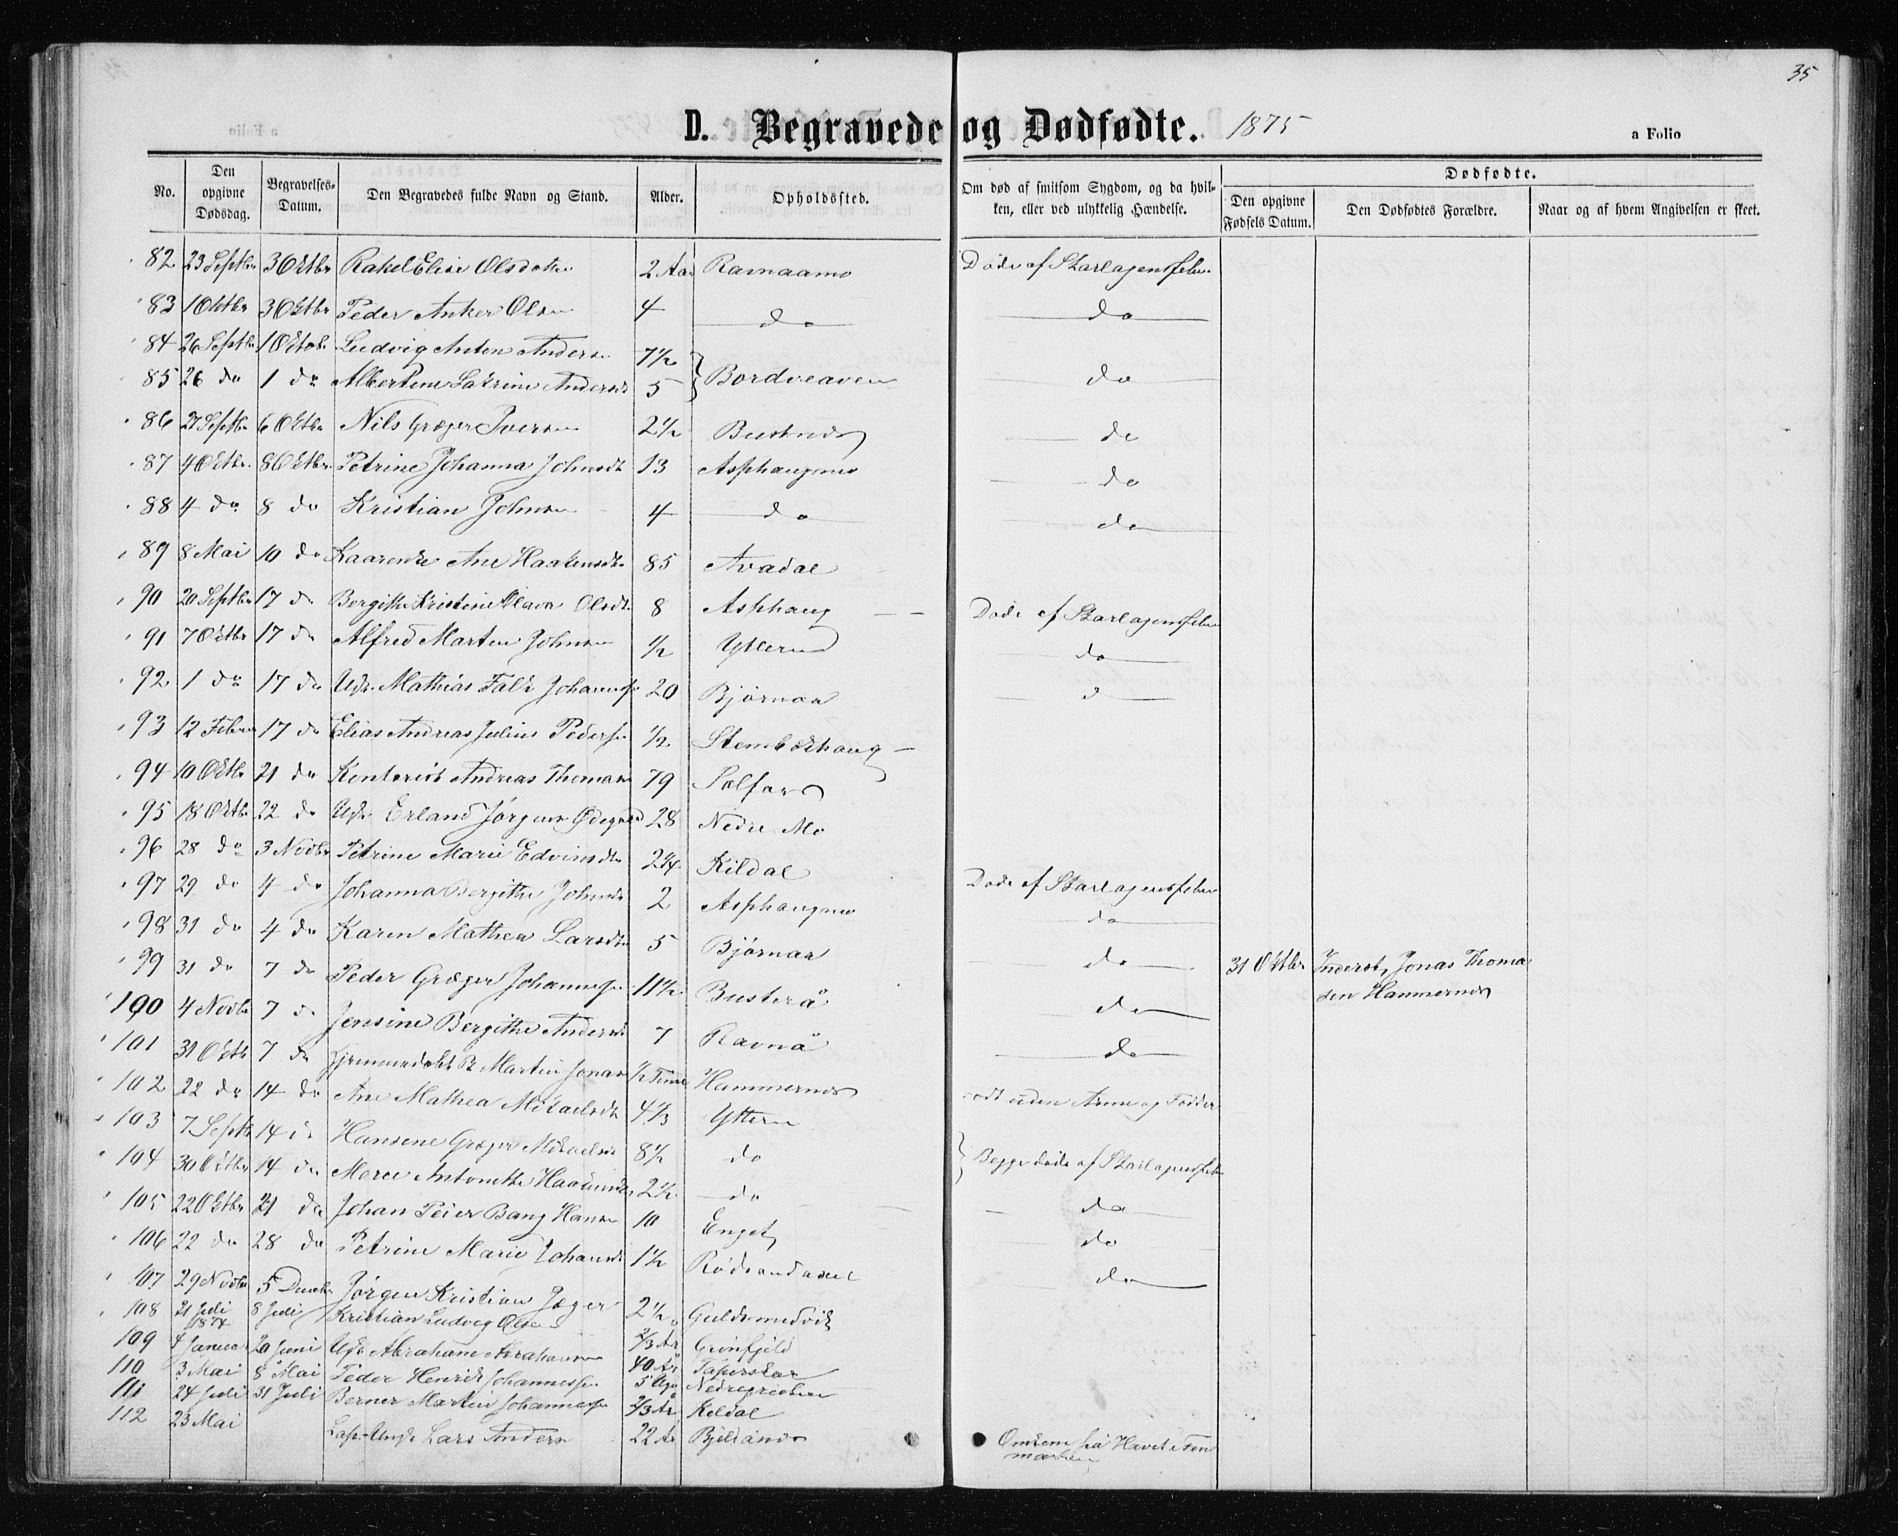 35
D. Begravede og Dødfødte. 1875
a Folio
No. | Den opgivne Dødsdag. | Begravelses-Datum. | Den Begravedes fulde Navn og Stand. | Alder. | Opholdssted. | Om død af smitsom Sygdom, og da hvilken, eller ved ulykkelig Hændelse. | Dødfødte. Den opgivne Fødsels Datum. | Den Dødfødtes Forældre. | Naar og af hvem Angivelsen er skeet.
82 23 Septbr 3 Oktbr Rakel Elise Olsdatter 2 Aar Ravnaamo Døde af Skarlagensfeber
83 1 Oktbr 3 Oktbr Peder Anker Olsen 4 do do
84 26 Septbr 1 Oktob Ludvig Anton Andersen 7 1/2
85 26 do 1 do Albertine Katrine Andersdt 5 Bordveaven do
86 27 Septbr 6 Oktbr Nils Græger Iversen 2 1/2 Bustnes do
87 4 Oktbr 8 Oktbr Petrine Johanna Johnsdt 13 Asphaugmo do
88 4 do 8 do Kristian Johnsen 4 do do
89 8 Mai 10 do Kaarenke Ane Haakensdt 85 Avadal
90 20 Septbr 17 do Bergithe Kristine Olava Olsdt 8 Asphaug Døde af Skarlagensfeber
91 7 Oktbr 17 do Alfred Martin Johnsen 1/2 Ytteren do
92 1 do 17 do Ugk. Mathias Falk Johannessen 20 Bjørnaa d
93 12 Febr 17 do Elias Andreas Julius Pedersen 1/2 Stembækhaug
94 10 Oktbr 21 do Andreas Thomas 79 Selfors
95 18 Oktbr 22 do Ugk Erland Jørgen Ødegaard 28 Nedre Mo
96 28 do 3 Novbr Petrine Marie Edvinsdt 2 1/4 Kildal
97 29 do 4 do Johanna Bergithe Johnsdt 2 Asphaugmo Døde af Skarlagensfeber
98 31 do 4 do Karen Mathea Larsdt 5 Bjørnaa do
99 31 do 7 do Peder Græger Johannessen 11 1/2 Busterå do 31 Oktbr Inderst, Jonas Thomas
sen Hammernes
100 4 Novbr 7 d Jensine Bergithe Andersdt 7 Ravnå do
101 31 Oktb 7 do Martin Jonas 1/2 Time Hammernes do
102 22 do 14 do Ane Mathea Mikaelsdt 4 1/3 Ytteren født uden Arme og Fødder
103 7 Septbr 14 d Hansene Græger Mikaelsdt 8 1/2 do
104 30 Oktbr 14 do Meree Antonette 2 1/2 do Begge døde af Skarlagensfeber
105 22 Oktbr 21 do Johan Peter Bang Hansen 10 Enget do
106 22 do 28 do Petrine Marie Johansdt 1 1/2 Rødsandaael do
107 29 Novbr 5 Decbr Jørgen Kristian Jæger 2 1/2 Guldsmedvik do
108 21 Juli 1874 8 Juli Kristian Ludvig Olsen 2/3 Ar Grønfjeld
109 4 Januar 20 Juni Ugk Abraham Abrahamsen 40 År Tapperskar
110 3 Mai 8 Mai Peder Henrik Johannessen 5 Uger
111 24 Juli 31 Juli Berner Martin Johannessen 2/3 År Kildal
112 23 Mai Lap Ungk Lars Andersen 22 År Omkom på Havet i Fin
marken